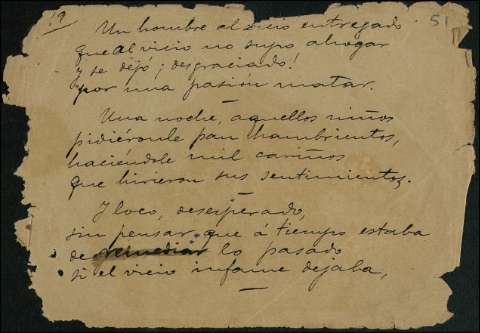 1ª
51
Un hombre al vicio entregado
que al vicio no supo ahogar
y se dejó ¡desgraciado!
por una pasión matar.
Una noche, aquellos niños
pidiéronle pan hambrientos,
haciéndole mil cariños
que hirieron sus sentimientos.
Y loco, desesperado,
sin pensar que á tiempo estaba
de remediar lo pasado
si el vicio infame dejaba,